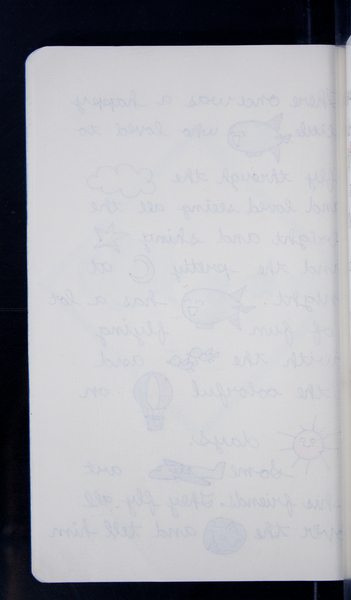 There once was a happy
little who loved to
fly through the
and loved seeing all the
bright and shiny
and the pretty at
night. has a lot
of fun flying
with the and
the colorful on
days!
Some are
his friends. They fly all
over the and tell him